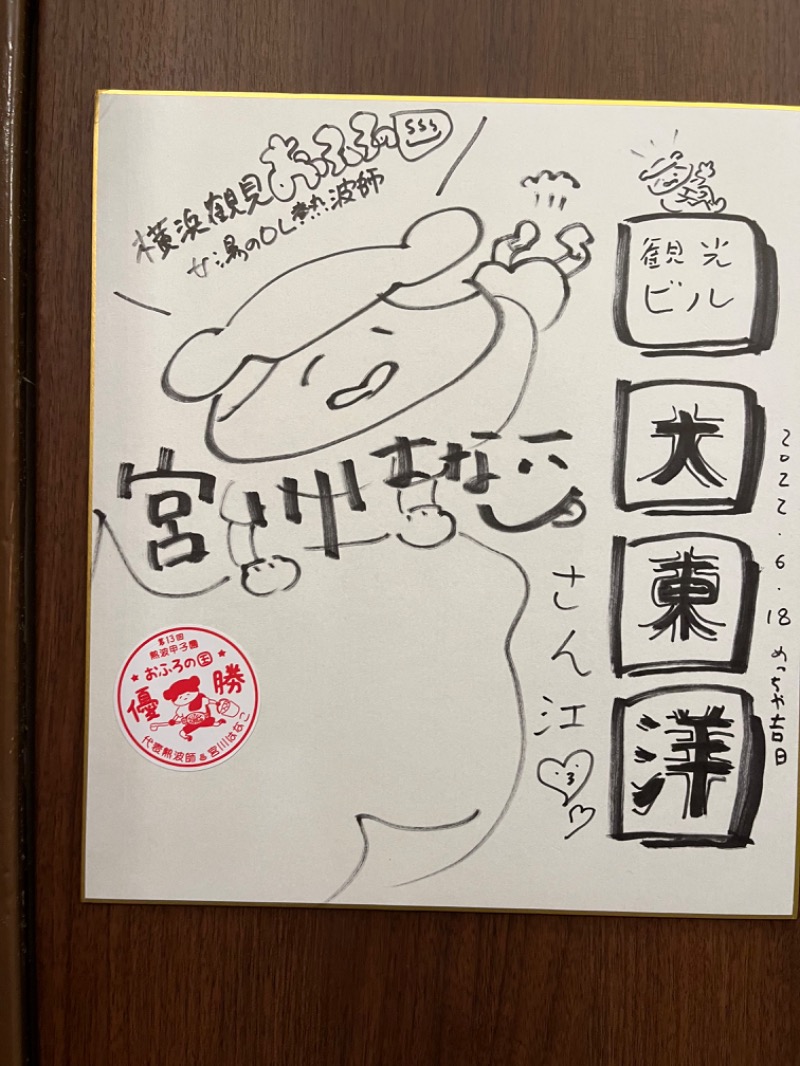 横浜鶴見おふろの国
女湯のOL熱波師
宮川はなこ
観光
ビル
大
東
洋
さん江
2022.6.18 めっちゃ吉日
第13回
熱波甲子園
おふろの国
優勝
代表熱波師&宮川はなこ